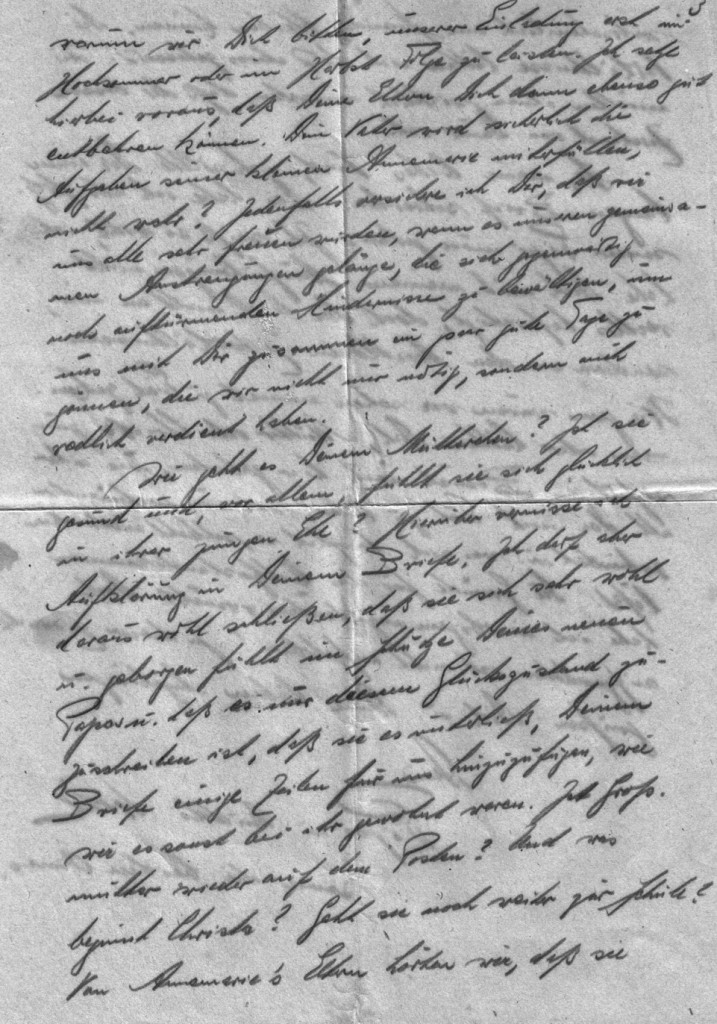 warum wir Dich bitten, unserer Einladung erst im
Hochsommer oder im Herbst Folge zu leisten. Ich setze
hierbei voraus, daß Deine Eltern Dich dann ebenso gut
entbehren können. Dein Vater wird sicherlich die
Aufgaben seiner kleinen Annemarie miterfüllen,
nicht wahr? Jedenfalls versichere ich Dir, daß wir
uns alle sehr freuen würden, wenn es unseren gemeinsa-
men Anstrengungen gelänge, die sich gegenwärtig
noch auftürmenden Hindernisse zu bewältigen, um
uns mit Dir zusammen ein paar gute Tage zu
gönnen, die wir nicht nur nötig, sondern auch
redlich verdient haben.
Wie geht es Deinem Mütterchen? Ist sie
gesund und, vor allem, fühlt sie sich glücklich
in ihrer jungen Ehe? Hierüber vermisse ich
Aufklärung in Deinem Briefe. Ich darf aber
daraus wohl schließen, daß sie sich sehr wohl
u. geborgen fühlt im Schutze Deines neuen
Papas u. daß es nur diesem Glückszustand zu-
zuschreiben ist, daß sie es unterließ, Deinem
Briefe einige Zeilen für uns hinzuzufügen, wie
wir es sonst bei ihr gewohnt waren. Ist Groß-
mutter wieder auf dem Posten? Und was
beginnt Christa? Geht sie noch weiter zur Schule?
Von Annemarie's Eltern hörten wir, daß sie